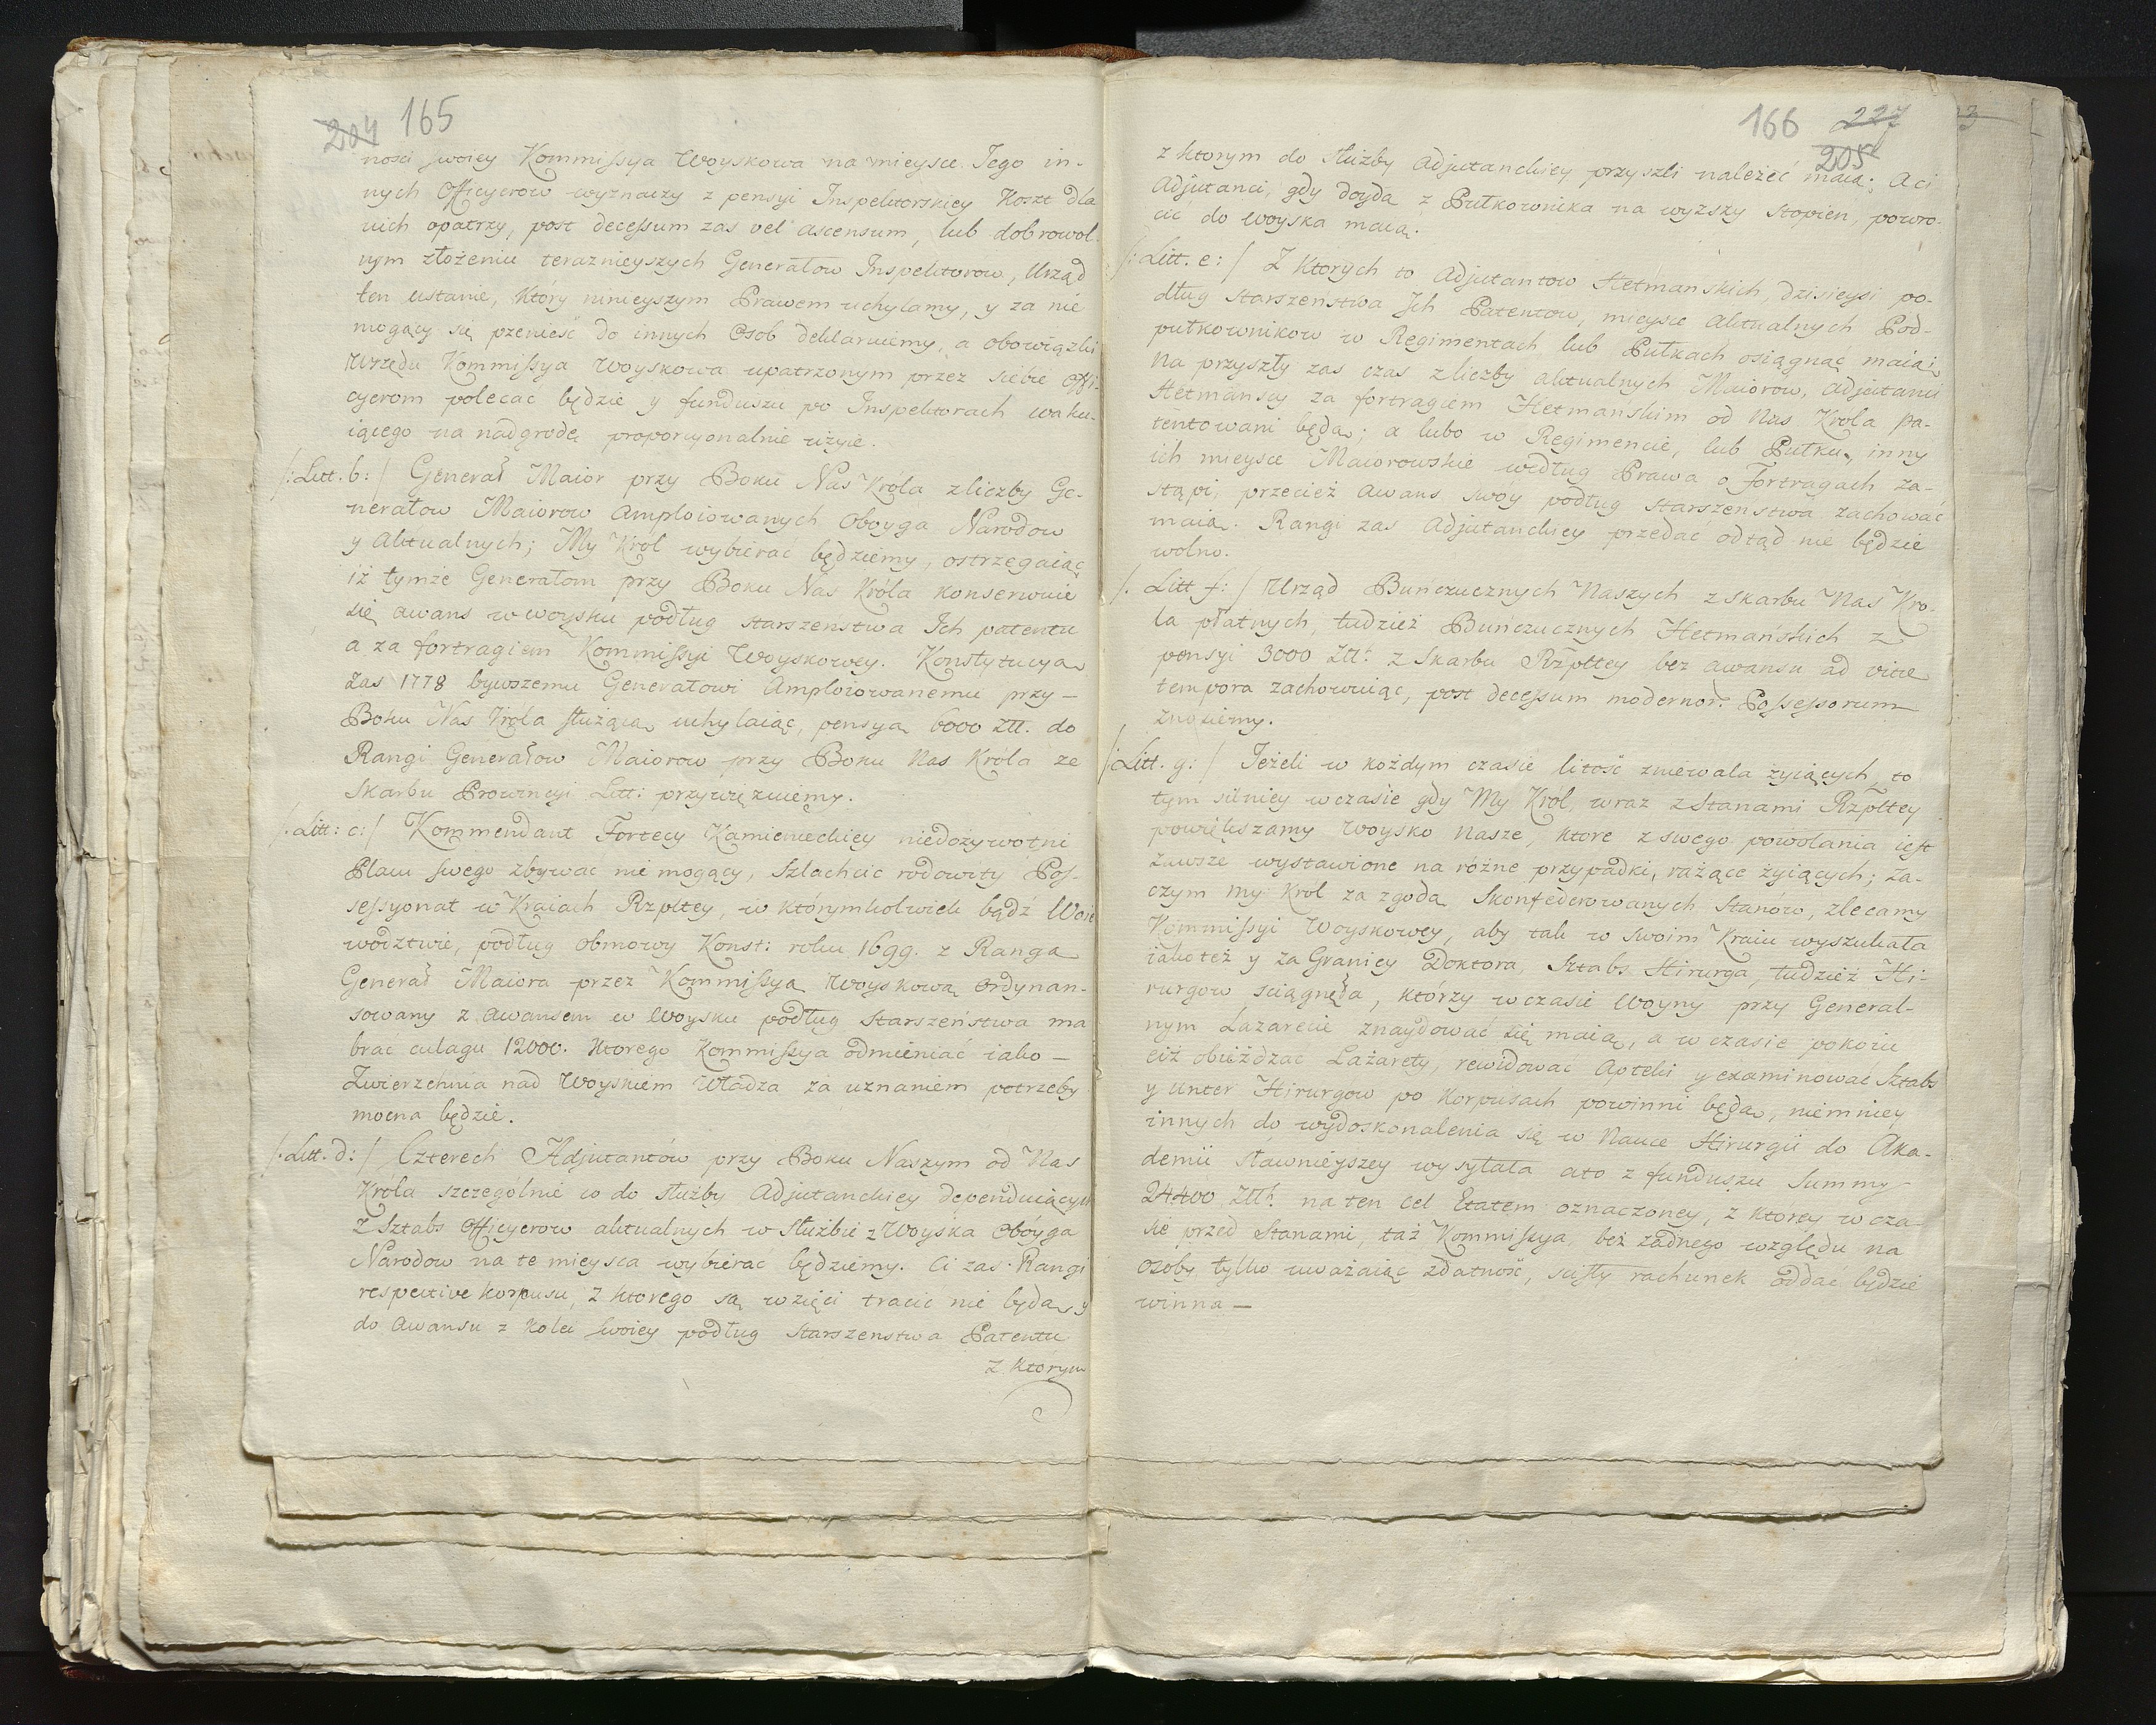 204 165
ności swoiey Kommissya Woyskowa na mieysce Jego in-
nych Officyerow wyznaczy z pensyi Inspektorskiey Koszt dla
nich opatrzy, post decessum zas vel ascensum, lub dobrowol-
nym złożeniu teraznieyszych Generałow Inspektorow, Urząd
ten ustanie, który ninieyszym Prawem uchylamy, y za nie
mogący się przenieść do innych Osob deklaruiemy, a obowiązki
Urzędu Kommissya Woyskowa upatrzonym przez siebie Offi-
cyerom polecac będzie y funduszu po Inspektorach waku-
iącego na nadgrodę proporcyonalnie użyie.
/: Litt. b: / Generał Maior przy Boku Nas Krola z liczby Ge-
nerałow Maiorow Amploiowanych Oboyga Narodow
y Aktualnych; My Król wybierać będziemy, ostrzegaiąc
iż tymże Generałom przy Boku Nas Króla konserwuie
się awans w woysku podług starszeństwa Ich patentu
a za fortragiem Kommissyi Woyskowey. Konstytucyą
zas 1778 bywszemu Generałowi Amploiowanemu przy-
Boku Nas Króla służącą uchylaiąc, pensyą 6000 Złł. do
Rangi Generałow Maiorow przy Boku Nas Króla ze
Skarbu Prowincyi Litt: przywięzuiemy.
/: Litt: c: / Kommendant Fortecy Kamienieckiey niedożywotni
Placu swego zbywac nie mogący, Szlachcic rodowity Pos-
sessyonat w Kraiach Rzpltey, w którymkolwiek bądź Woie
wodztwie, podług obmowy Konst: roku 1699. z Rangą
Generał Maiora przez Kommissyą Woyskową Ordynan-
sowany z awansem w Woysku podług Starszeństwa ma
brac culagu 12000. Ktorego Kommissya odmieniać iako-
Zwierzchnia nad Woyskiem Władza za uznaniem potrzeby
mocna będzie.
/: Litt. d: / Czterech Adjutantów przy Boku Naszym od Nas
Króla szczególnie co do służby Adjutanckiey dependuiących
z Sztabs Officyerow aktualnych w Służbie z Woyska Oboyga
Narodow na te mieysca wybierac będziemy. Ci zas Rangi
respective Korpusu, z ktorego są wzięci tracic nie będą y
do Awansu z Kolei swoiey podług Starszenstwa Patentu
z którym
166 227
205
z ktorym do służby Adjutanckiey przyszli należéć maią; A ci
Adjutanci, gdy doydą z Pułkownika na wyzszy stopien, powro-
cić do woyska maią.
/: Litt. e: / Z Ktorych to Adjutantow Hetmanskich dzisieysi po-
dług starszenstwa Ich Patentow, mieysce Aktualnych Pod-
pułkownikow w Regimentach lub Pułkach osiągnąć maią;
Na przyszły zas czas z liczby aktualnych Maiorow, Adjutanci
Hetmańscy za fortragiem Hetmanskim od Nas Krola pa-
tentowani będą; a lubo w Regimencie, lub Pułku, inny
ich mieysce Maiorowskie według Prawa o Fortragach za-
stąpi, przecież Awans swóy podług starszenstwa zachować
maią. Rangi zas Adjutanckiey przedac odtąd nie będzie
wolno.
/: Litt f: / Urząd Buńczucznych Naszych z skarbu Nas Kro-
la płatnych, tudzież Buńczucznych Hetmańskich z
pensyi 3000 Złł. z Skarbu Rzpltey bez awansu ad vitæ
tempora zachowuiąc, post decessum modernor. Possessorum
znosiemy.
/: Litt. g: / Jeżeli w każdym czasie litość zniewala żyiących, to
tym silniey w czasie gdy My Król, wraz z Stanami Rzpltey
powiększamy Woysko Nasze, ktore z swego powołania iest
zawsze wystawione na różne przypadki, rażące żyiących; Za-
czym my Krol za zgodą Skonfederowanych Stanów, zlecamy
Kommissyi Woyskowey, aby tak w swoim Kraiu wyszukała
iako też y za Granicy Doktora, Sztabs Hirurga, tudzież Hi-
rurgow sciągnęła, którzy w czasie Woyny przy General-
nym Lazarecie znaydować się maią, a w czasie pokoiu
ciż obieżdzac Lażarety, rewidować Apteki y examinować Sztabs
y Unter Hirurgow po Korpusach powinni będą, niemniey
innych do wydoskonalenia się w Nauce Hirurgii do Aka-
demii sławnieyszey wysyłała a to z funduszu Summy
24400 Złł. na ten cel Etatem oznaczoney, z ktorey w cza-
sie przed Stanami, taż Kommissya, bez żadnego względu na
osoby tylko uważaiąc zdatność, scisły rachunek oddać będzie
winna-